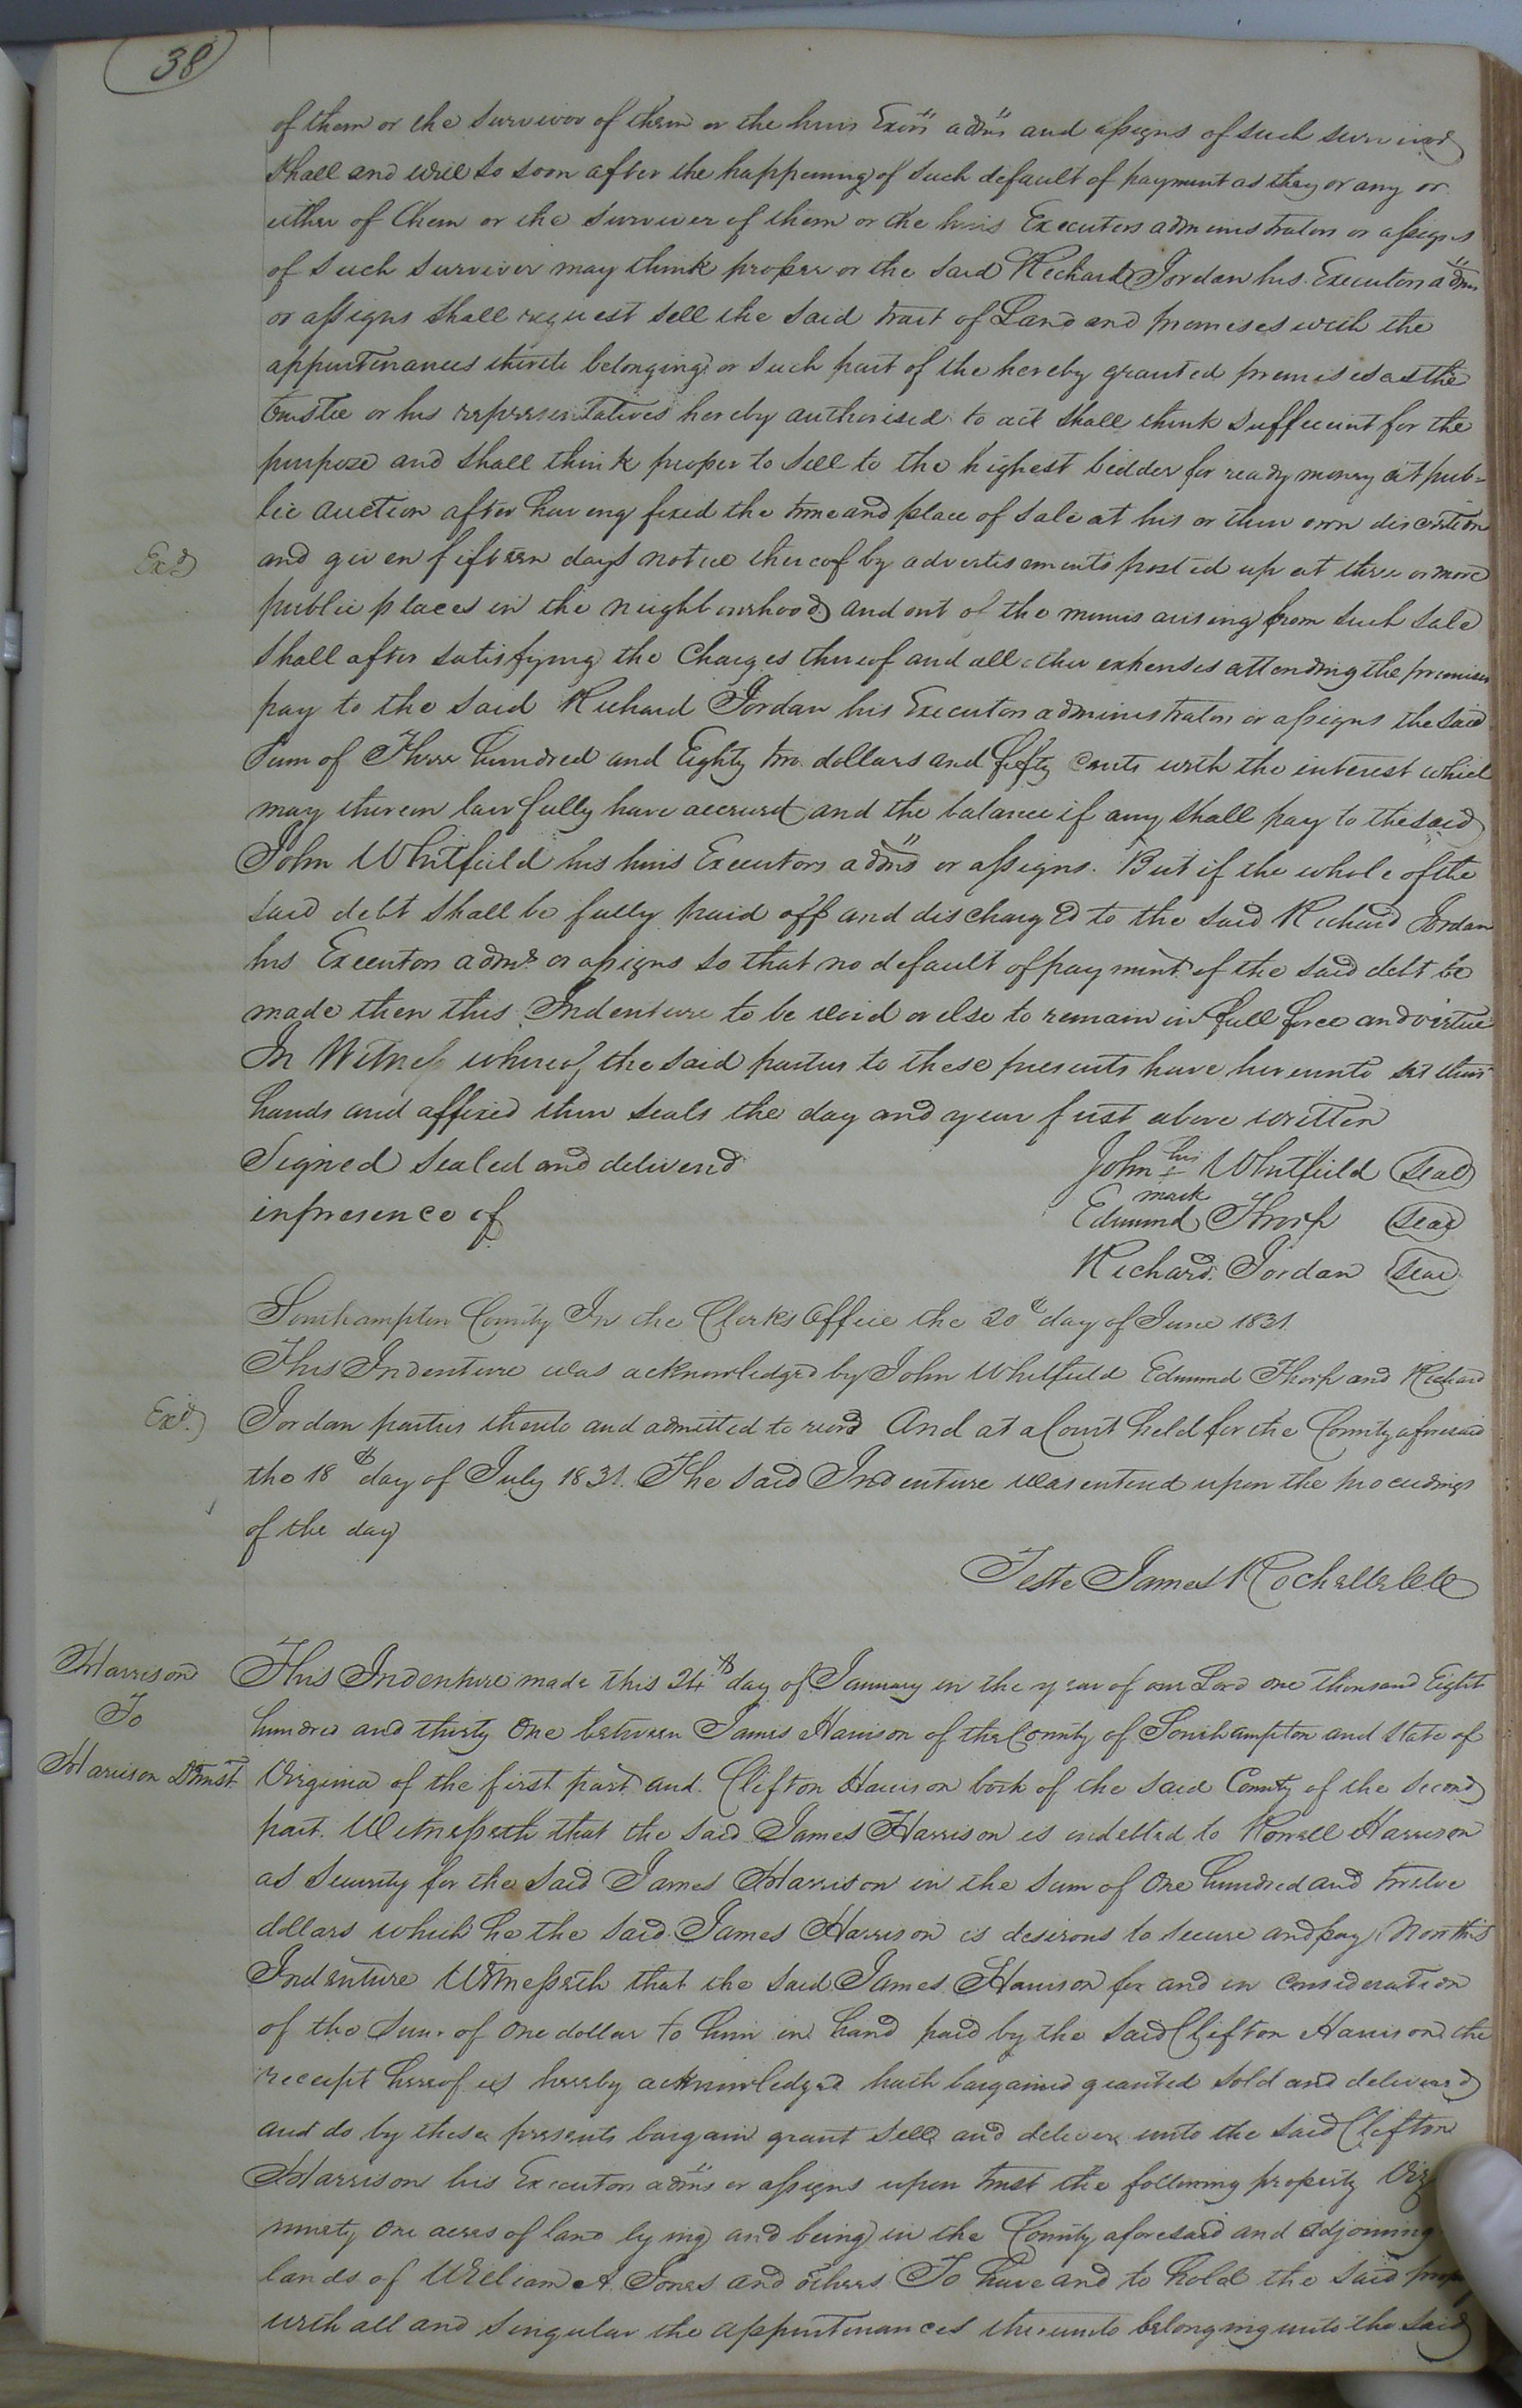 38
of them or the survivor of them or the heirs Exõrs admrs and assigns of such survivor
shall and will so soon after the happening of such default of payment as they or any or
either of them or the surviver of them or the heirs Executors administrators or assigns
of such survivor may think proper or the said Richard Jordan his Executors admrs
or assigns shall request sell the said tract of Land and premises with the
appurtenances thereto belonging or such part of the hereby granted premises as the
trustee or his representatives hereby authorised to act shall think sufficient for the
purpose and shall think proper to sell to the highest bidder for ready money at pub=
lic auction after having fixed the time and place of sale at his or their own discretion
Exd and given fifteen days notice thereof by advertisements posted up at three or more
public places in the neighbourhood and out of the monies arising from such sale
shall after satisfying the Charges thereof and all other expenses attending the premises
pay to the said Richard Jordan his Executors administrators or assigns the said
sum of Three hundred and Eighty two dollars and fifty cents with the interest which
may thereon lawfully have accrued and the balance if any shall pay to the said
John Whitfield his heirs Executors admrs or assigns. But if the whole of the
said debt shall be fully paid off and discharged to the said Richard Jordan
his Executors admrs or assigns so that no default of payment of the said debt be
made then this Indenture to be void or else to remain in full force and virtue
In Witness whereof the said parties to these presents have hereunto set their
hands and affixed their seals the day and year first above written
Signed sealed and delivered
in presence of
John his + mark Whitfield seal
Edmund Thorp seal
Richard Jordan seal
Southampton County In the Clerks Office the 20th day of June 1831.
This Indenture was acknowledged by John Whitfield Edmund Thorp and Richard
Exd. Jordan parties thereto and admitted to record And at a Court held for the County aforesaid
the 18th day of July 1831. The said Indenture was entered upon the proceedings
of the day
Teste James Rochelle Clk
Harrison
To
Harrison Dtrust
This Indenture made this 24th day of January in the year of our Lord one thousand Eight
hundred and thirty One between James Harrison of the County of Southampton and State of
Virginia of the first part and Clifton Harrison both of the said County of the second
part. Witnesseth that the said James Harrison is indebted to Howell Harrison
as security for the said James Harrison in the sum of One hundred and twelve
dollars which he the said James Harrison is desirous to secure and pay Now this
Indenture Witnesseth that the said James Harrison for and in consideration
of the sum of One dollar to him in hand paid by the said Clifton Harrison the
receipt hereof is hereby acknowledged hath bargained granted sold and delivered
and do by these presents bargain grant sell and deliver unto the said Clifton
Harrison his Executors admrs or assigns upon trust the following property Viz
ninety one acres of land lying and being in the County aforesaid and adjoining
lands of William A. Jones and others To have and to hold the said
with all and singular the appurtenances thereunto belonging unto the said